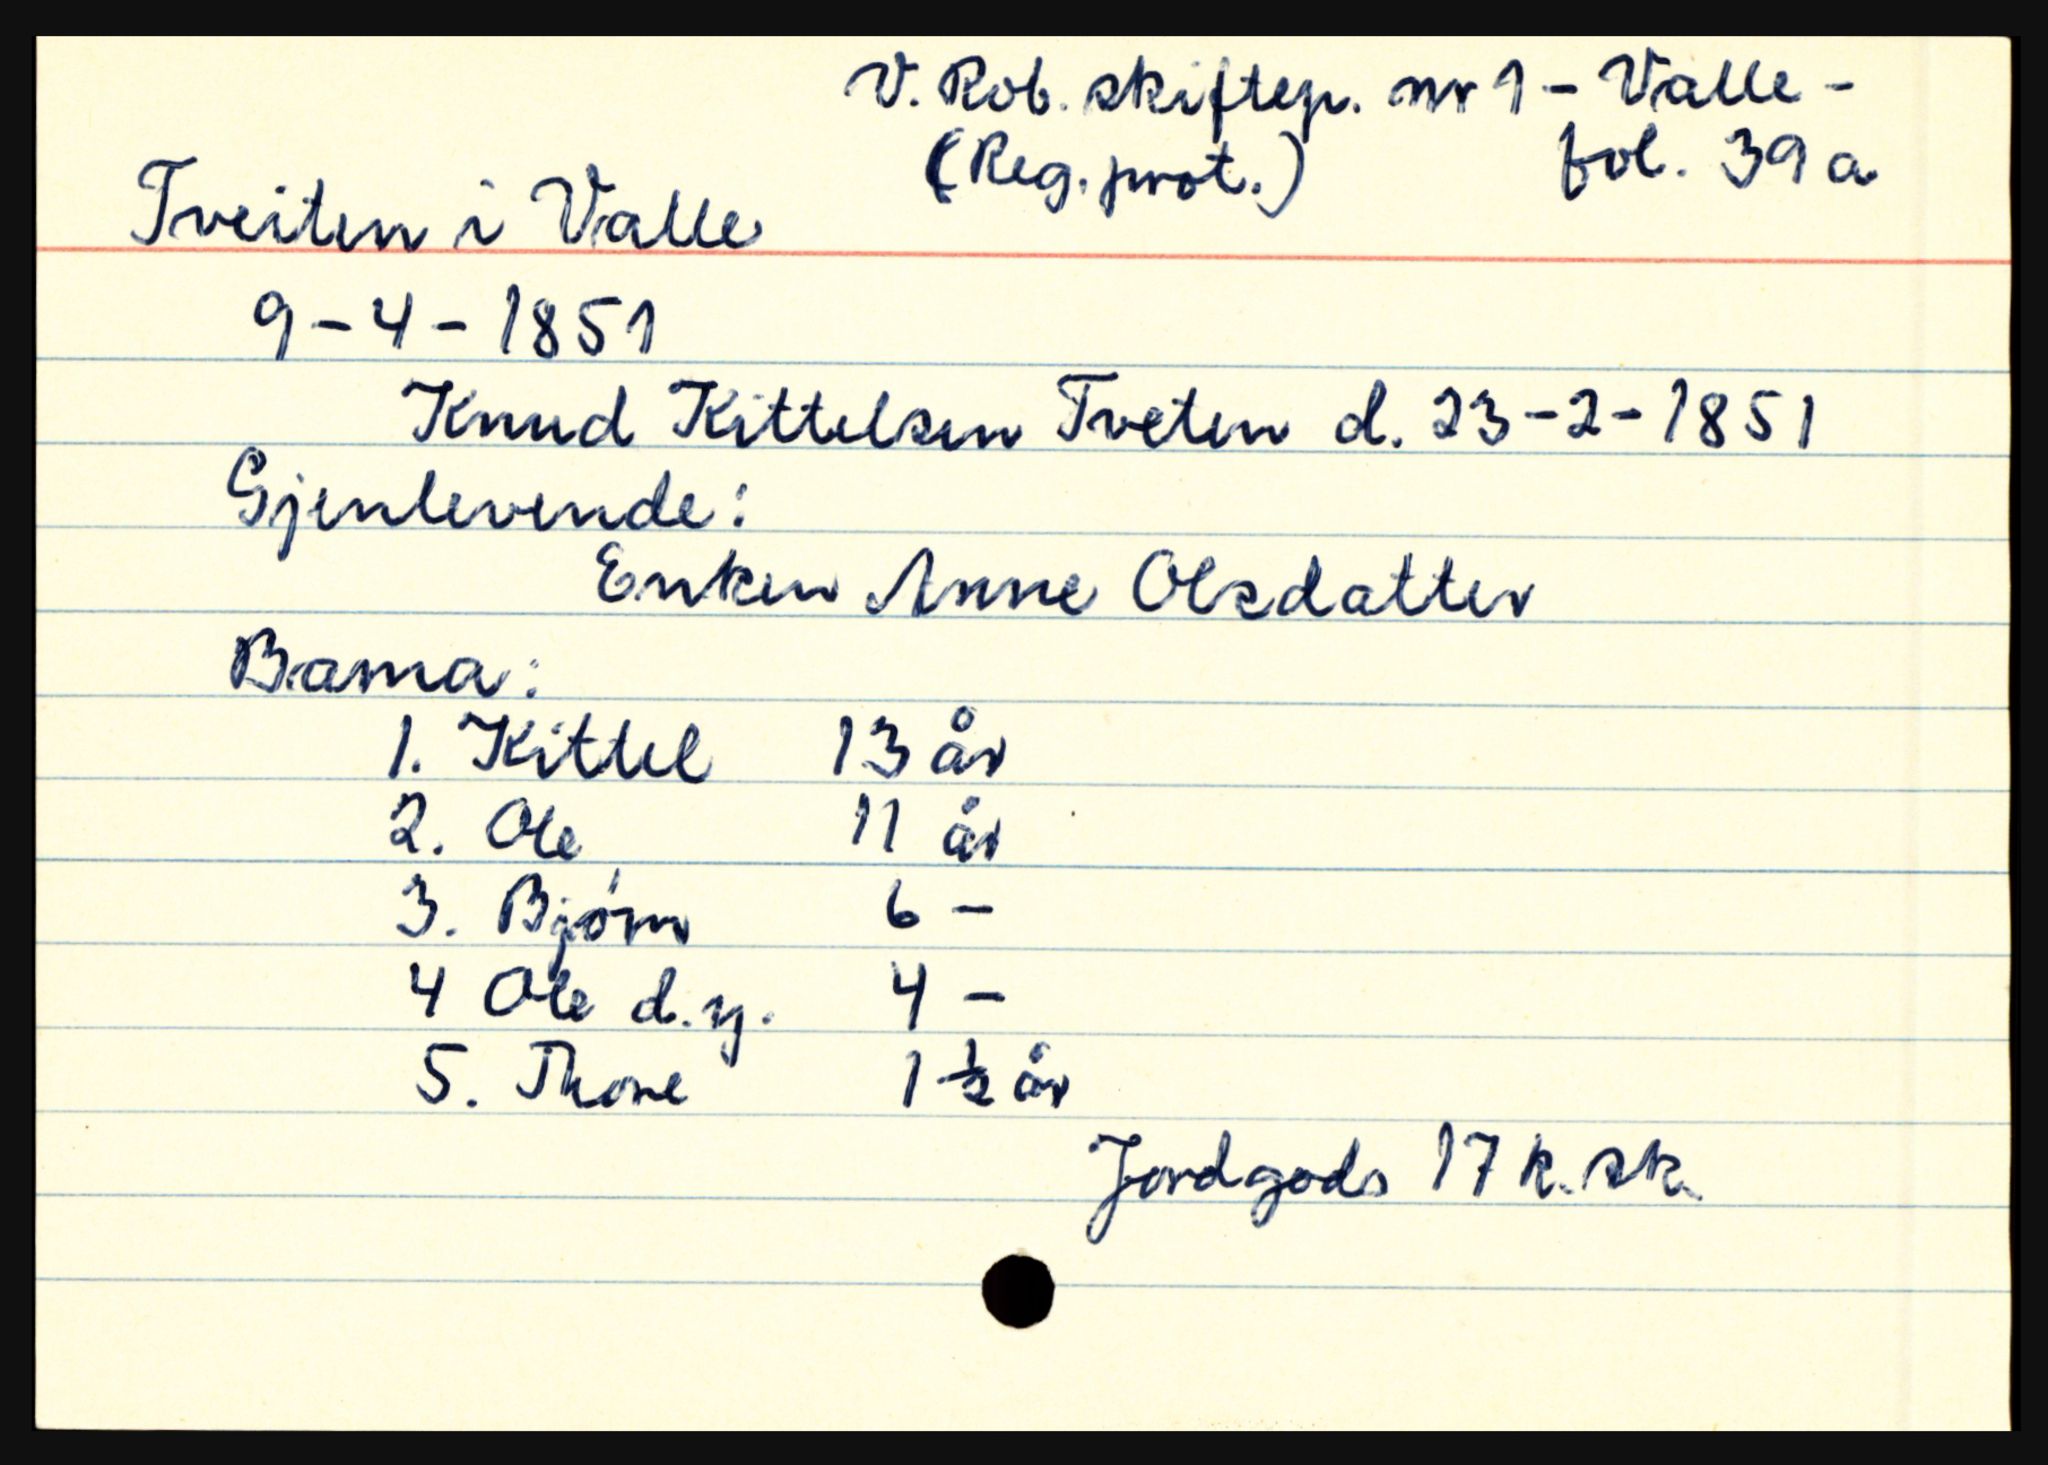 V. Rob. skiftep. nr 1 - Valle -
(Reg. prot.) fol. 39 a
Tveiten i Valle
9 - 4 - 1851
Knud Kittelsen Tveten d. 23 - 2 - 1851
Gjenlevende:
Enken Anne Olsdatter
Barna:
1. Kittel 13 år
2. Ole 11 år
3. Bjørn 6 -
4 Ole d.y. 4 -
5. Thore 1 ½ år
Jordgods 17 k. sk.